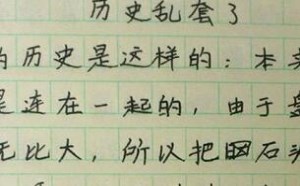 历史乱套了
的历史是这样的：本来
是连在一起的，由于
无比大，所以把石头